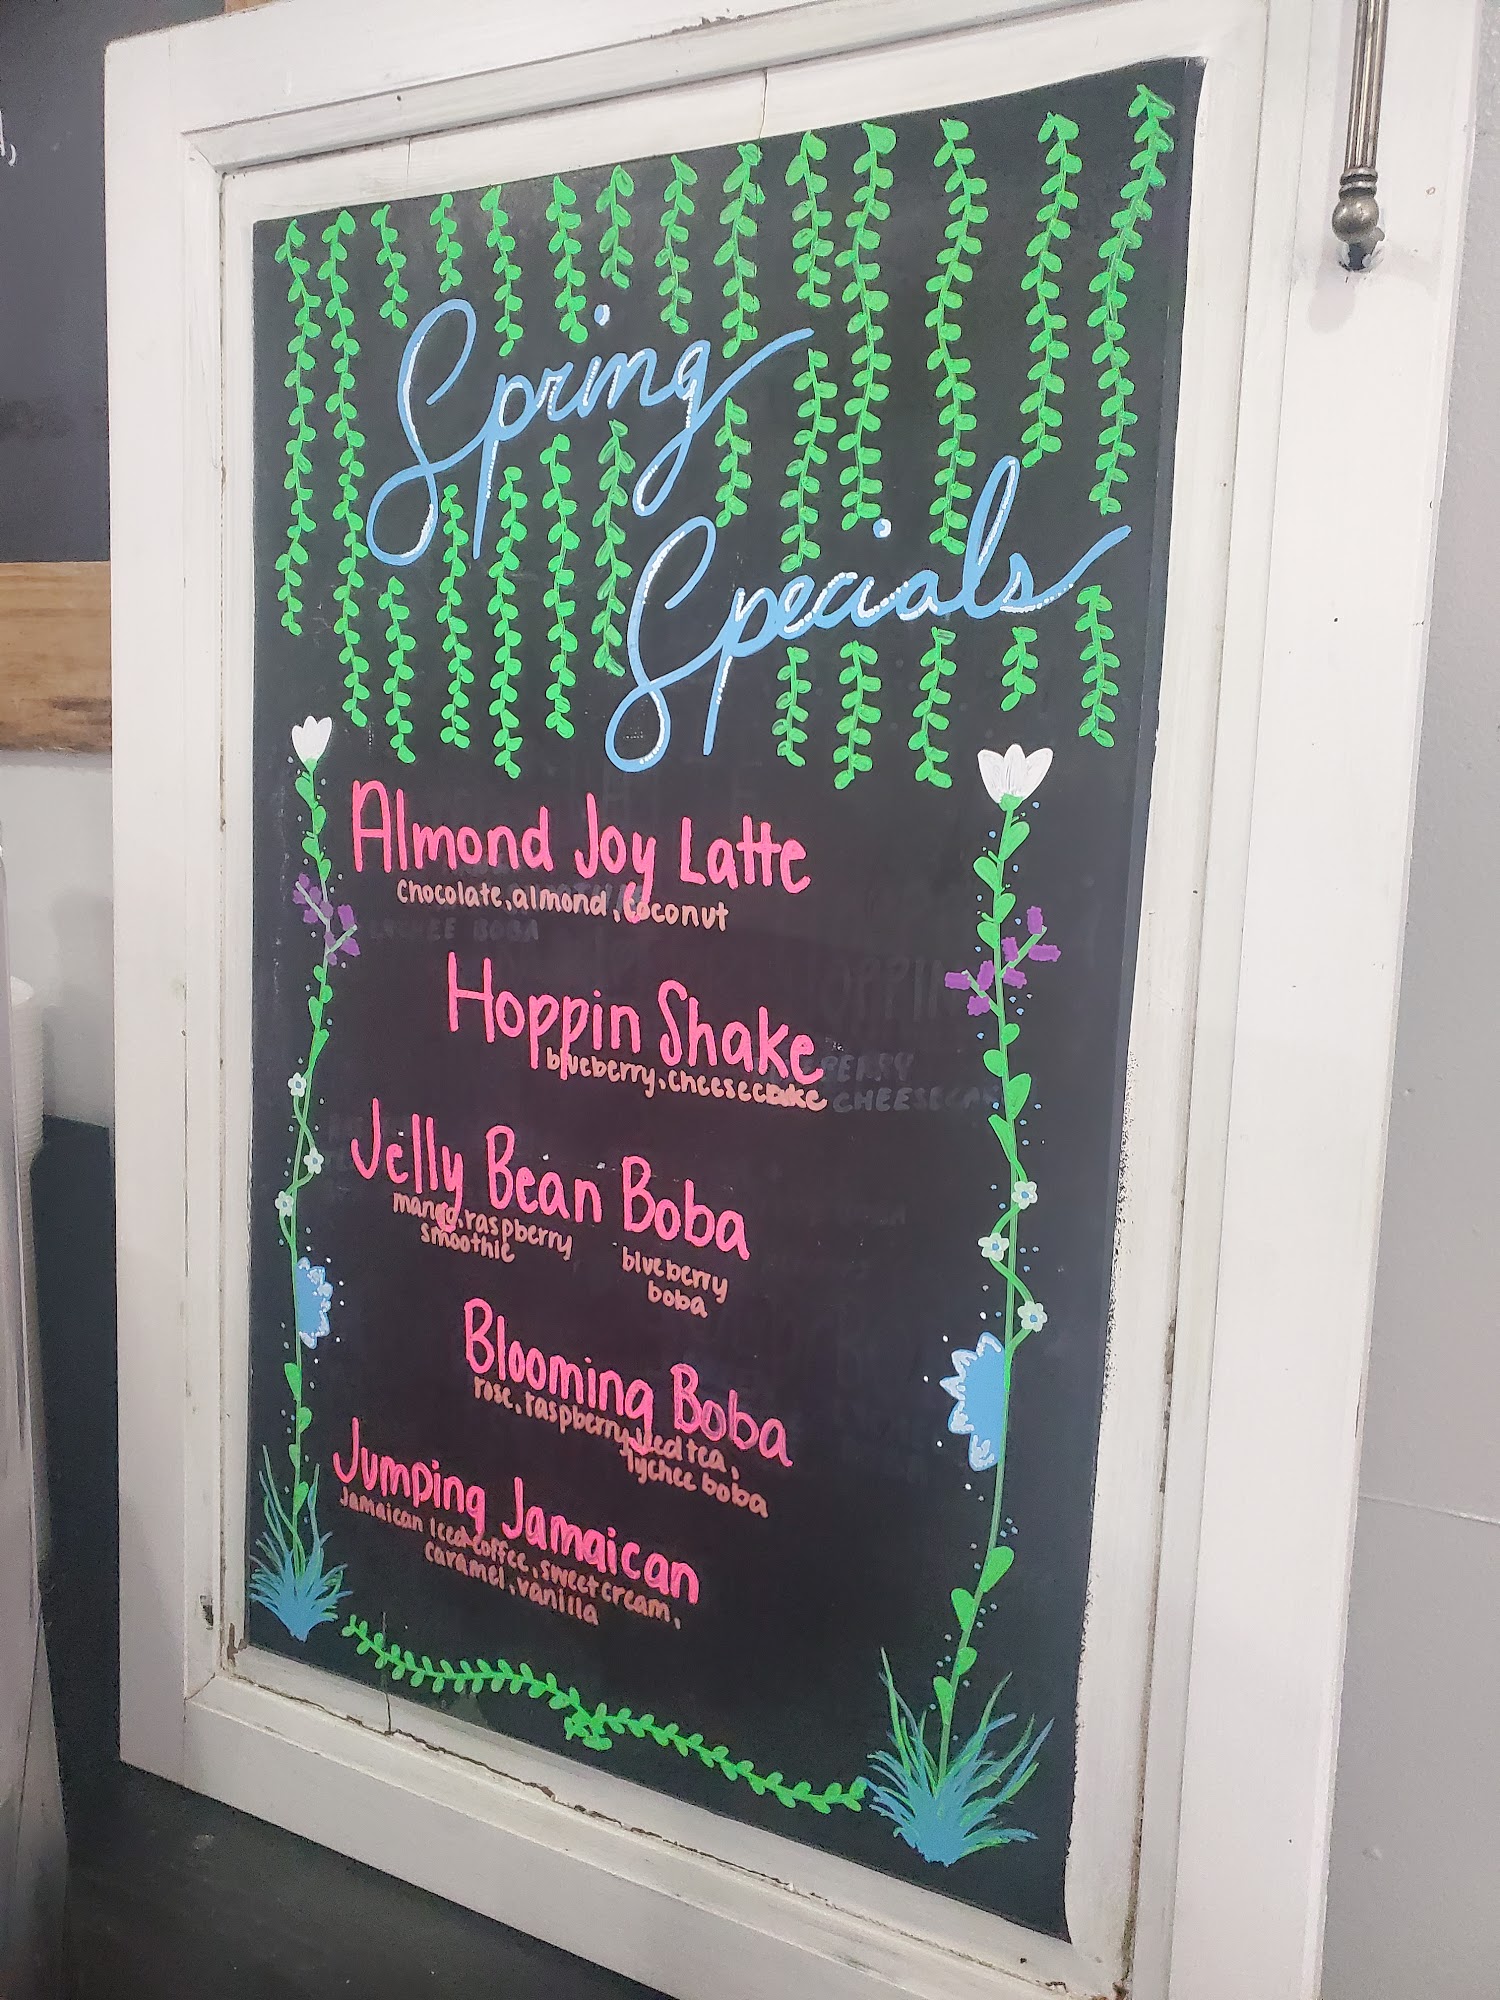 Spring
Specials
Almond Joy Latte
chocolate, almond, coconut
LYCHEE BOBA
Hoppin Shake
blueberry, cheesecake
CHEESECA
Jelly Bean Boba
mango, raspberry
smoothie
blueberry
boba
Blooming Boba
rose, raspberry iced tea,
lychee boba
Jumping Jamaican
Jamaican Iced Coffee, sweet cream,
caramel, vanilla